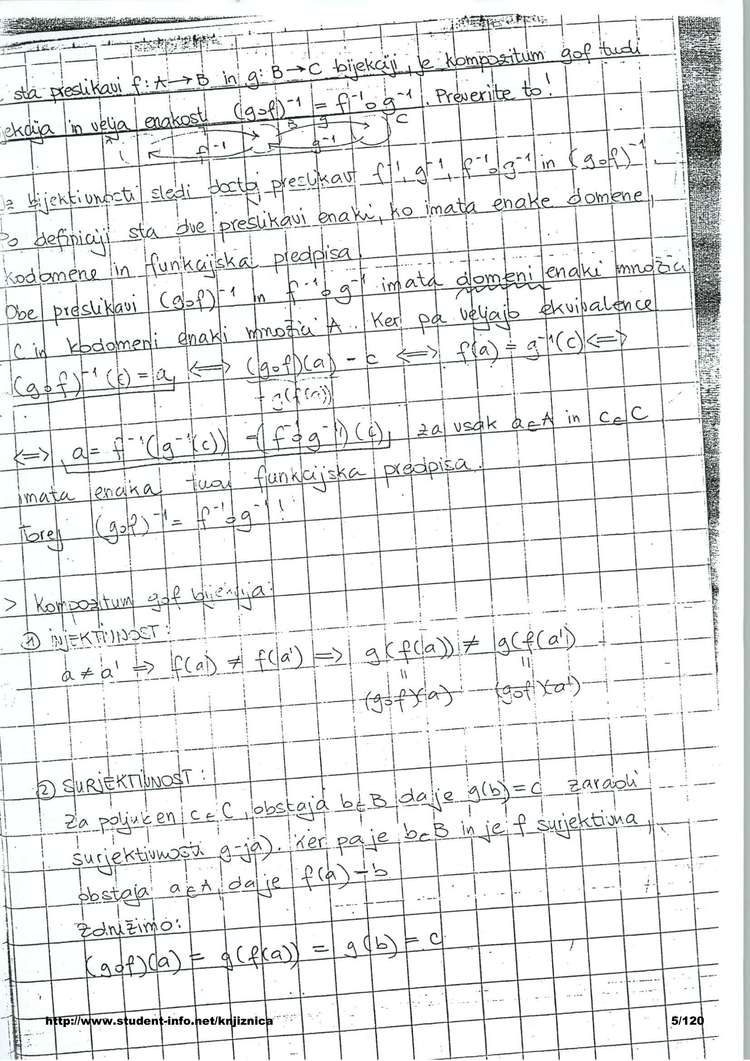 sta preslikavi f: A → B in g: B → C bijekciji, je kompozitum g∘f tudi
ekcija in velja enakost (g∘f)⁻¹ = f⁻¹∘g⁻¹. Preverite to!
B g C
f⁻¹ g⁻¹
z bijektivnosti sledi obstoj preslikav f⁻¹, g⁻¹, f⁻¹∘g⁻¹ in (g∘f)⁻¹.
Po definiciji sta dve preslikavi enaki, ko imata enake domene,
kodomene in funkcijska predpisa.
Obe preslikavi (g∘f)⁻¹ in f⁻¹∘g⁻¹ imata domeni enaki množici
C in kodomeni enaki množici A. Ker pa veljajo ekvivalence
(g∘f)⁻¹(c) = a ⟺ (g∘f)(a) = c ⟺ f(a) = g⁻¹(c) ⟺
= g(f(a))
⟺ a = f⁻¹(g⁻¹(c)) = (f⁻¹∘g⁻¹)(c), za vsak a∈A in c∈C
imata enaka tudi funkcijska predpisa.
Torej (g∘f)⁻¹ = f⁻¹∘g⁻¹!
> Kompozitum g∘f bijekcija:
① INJEKTIVNOST:
a ≠ a' ⟹ f(a) ≠ f(a') ⟹ g(f(a)) ≠ g(f(a'))
(g∘f)(a) (g∘f)(a')
② SURJEKTIVNOST:
Za poljuben c∈C, obstaja b∈B da je g(b) = c zaradi
surjektivnosti g-ja). Ker pa je b∈B in je f surjektivna,
obstaja a∈A, da je f(a) = b
Združimo:
(g∘f)(a) = g(f(a)) = g(b) = c
http://www.student-info.net/knjiznica 5/120